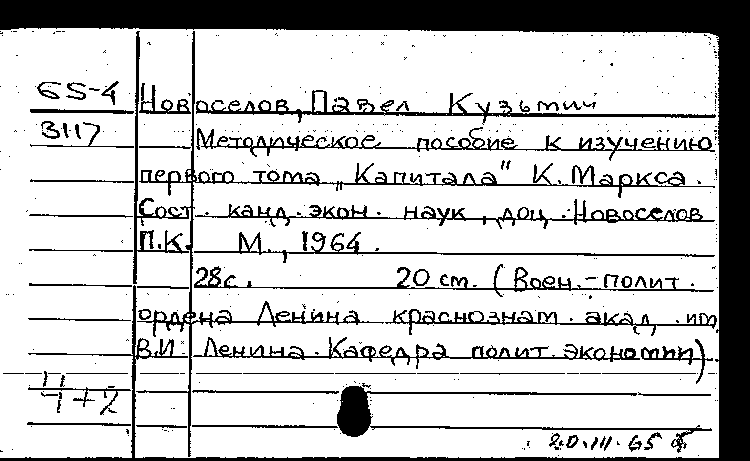 65-4 Новоселов, Павел Кузьмич
3117 Методическое пособие к изучению
первого тома „Капитала" К. Маркса.
Сост. канд. экон. наук, доц. Новоселов
П.К. М., 1964.
28с. 20 см. (Воен.-полит.
ордена Ленина краснознам. акад. им.
В.И. Ленина. Кафедра полит. экономии)
4+2
20.III.65